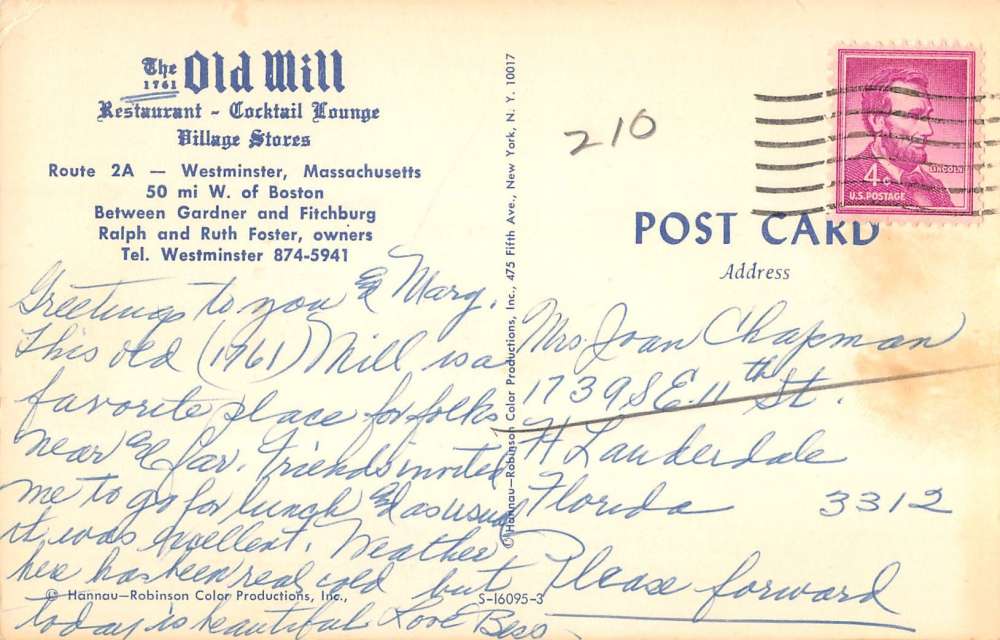 The
1761
Old Mill
Restaurant - Cocktail Lounge
Village Stores
Route 2A — Westminster, Massachusetts
50 mi W. of Boston
Between Gardner and Fitchburg
Ralph and Ruth Foster, owners
Tel. Westminster 874-5941
Greetings to you & Mary.
This old (1761) Mill is a
favorite place for folks
near & far. Friends invited
me to go for lunch & as usual
it was excellent. Weather
here has been real cold but
today is beautiful Love Bess
© Hannau—Robinson Color Productions, Inc.,
S-16095-3
© Hannau—Robinson Color Productions, Inc., 475 Fifth Ave., New York, N. Y. 10017
210
LINCOLN
4c
U.S. POSTAGE
POST CARD
Address
Mrs. Joan Chapman
1739 S E. 11th St.
Ft Lauderdale
Florida 3312
Please forward